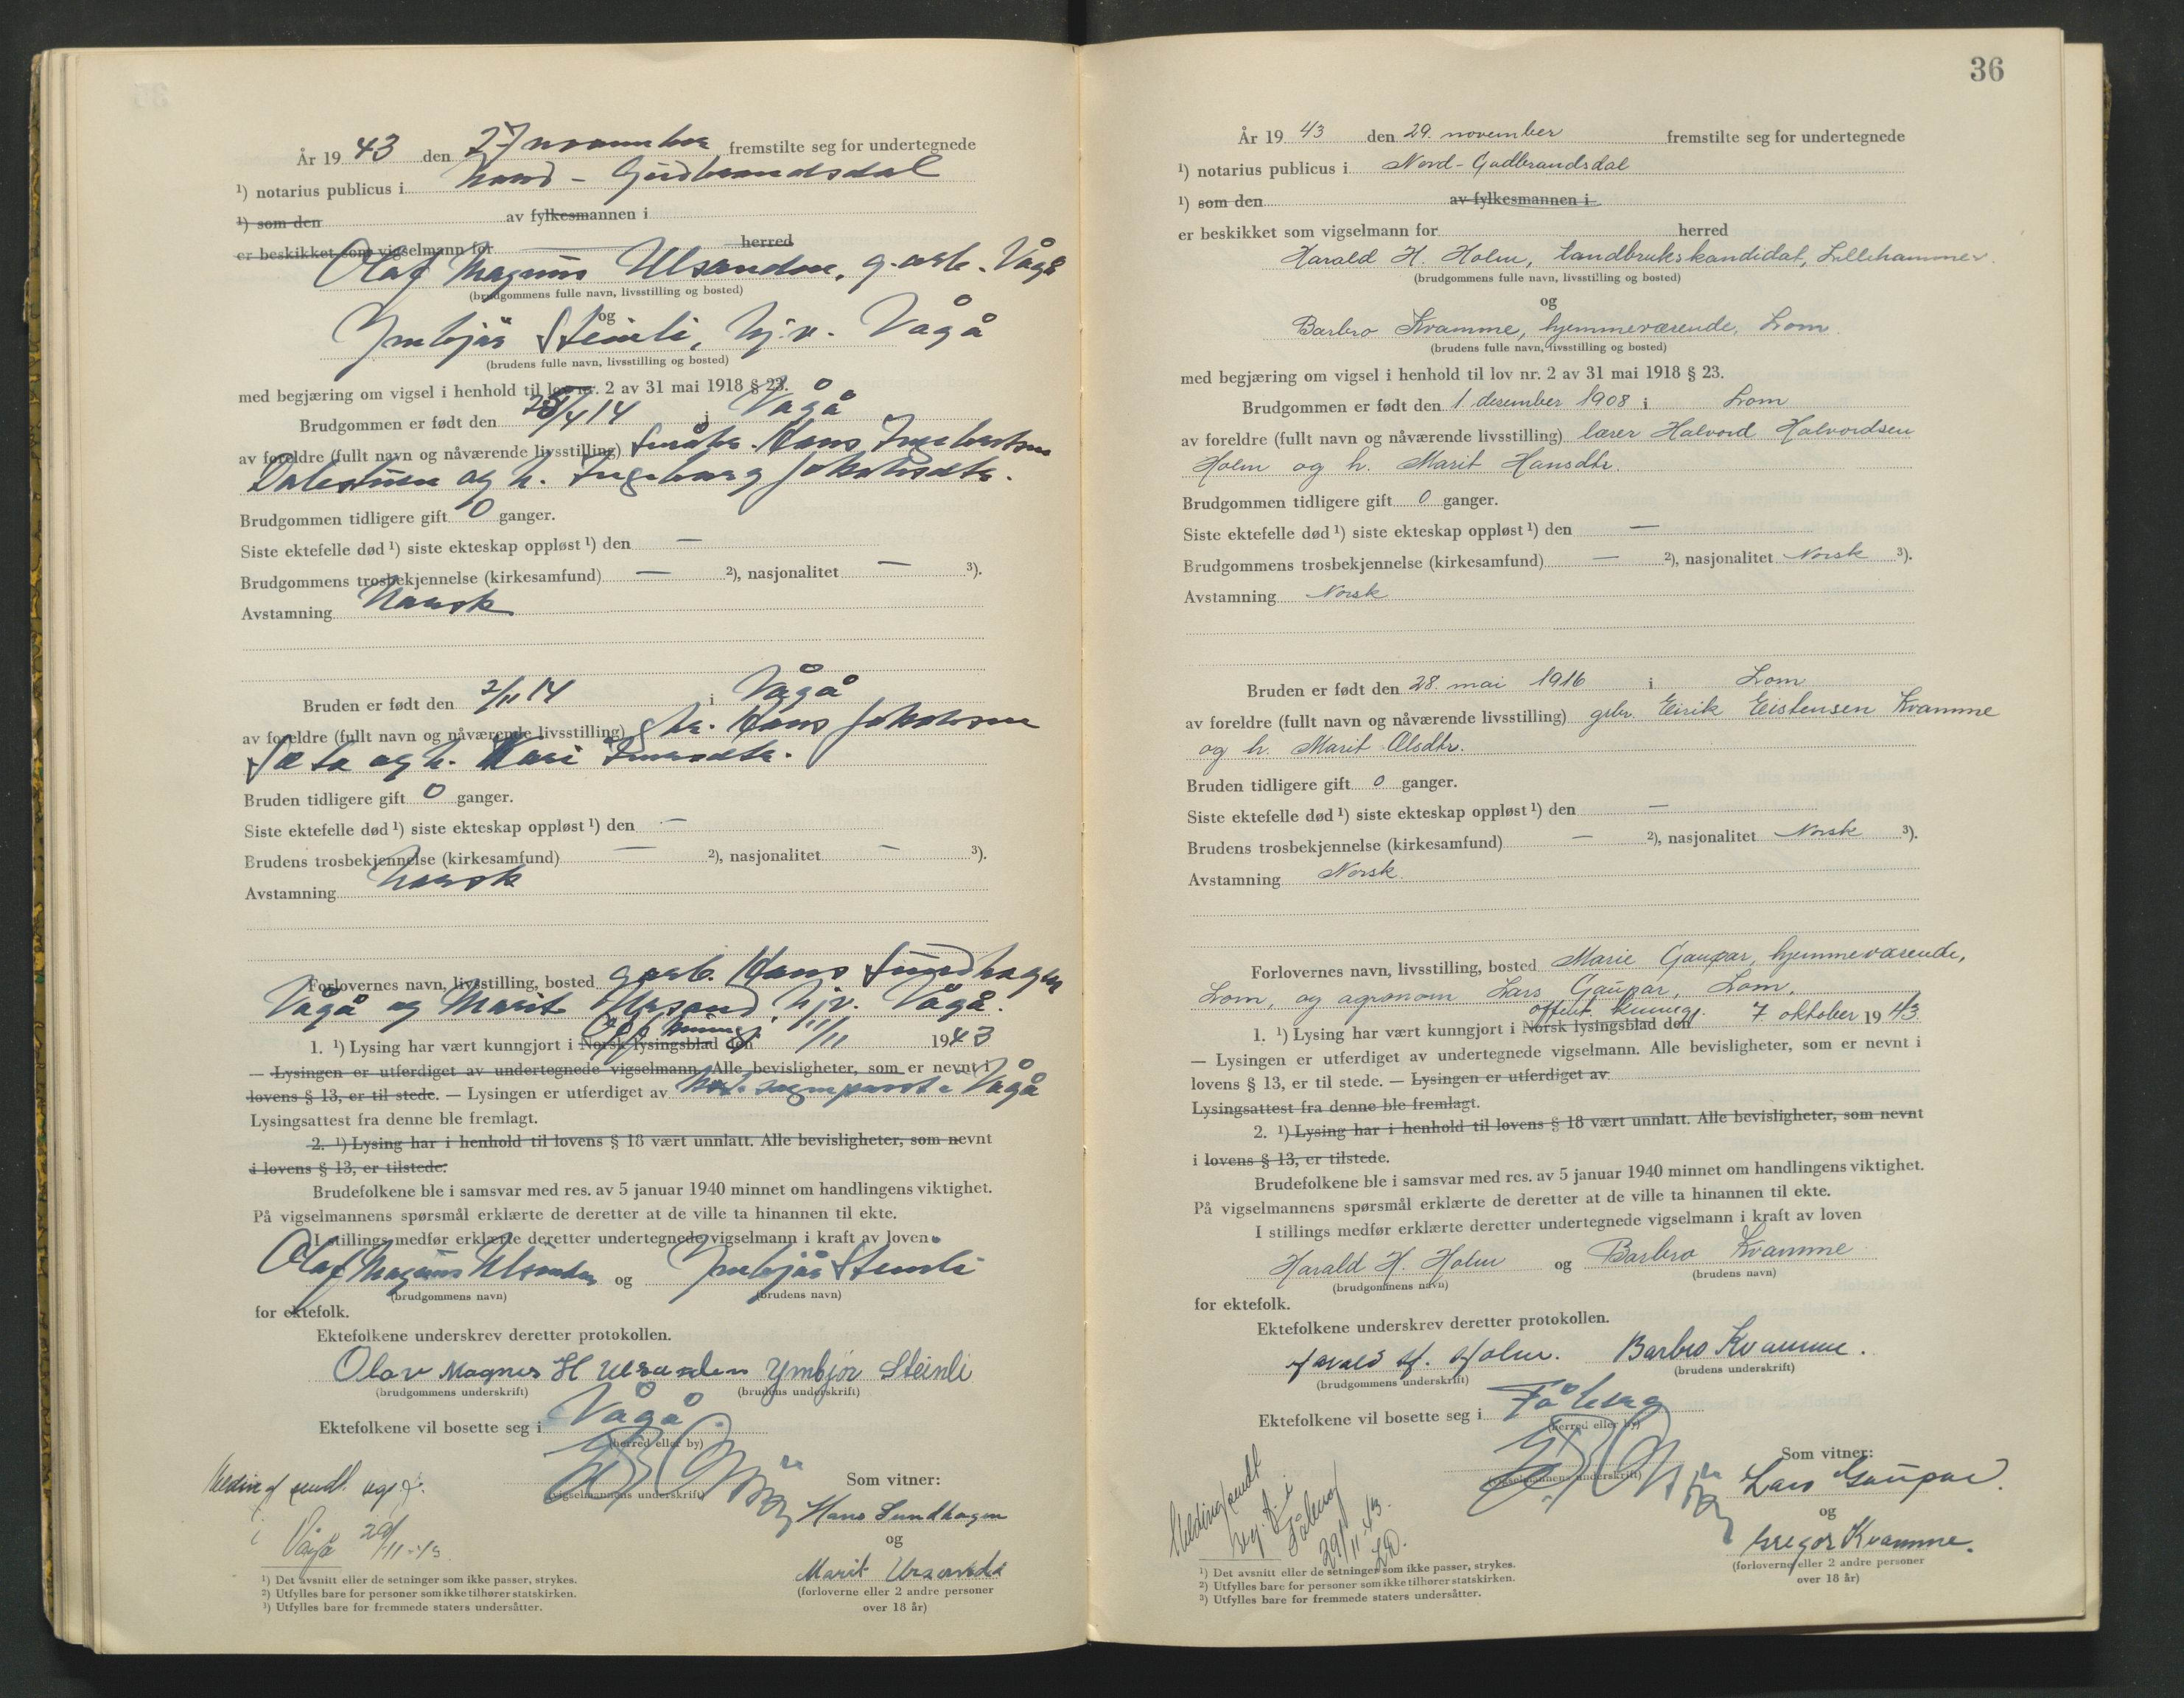 År 19 43 den 27 november fremstilte seg for undertegnede
¹) notarius publicus i Nord-Gudbrandsdal
¹) som den av fylkesmannen i
er beskikket som vigselmann for herred
Olaf Magnus Ulsanden, g.arb. Vågå
(brudgommens fulle navn, livsstilling og bosted)
og
Ymbjør Steinli, hj.v. Vågå
(brudens fulle navn, livsstilling og bosted)
med begjæring om vigsel i henhold til lov nr. 2 av 31 mai 1918 § 23.
Brudgommen er født den /4 14 i Vågå
av foreldre (fullt navn og nåværende livsstilling) småbr. Hans Ingebretsen
og h. Ingeborg Jakobsdtr.
Brudgommen tidligere gift 0 ganger.
Siste ektefelle død ¹) siste ekteskap oppløst ¹) den —
Brudgommens trosbekjennelse (kirkesamfund) — ²), nasjonalitet — ³).
Avstamning Norsk
Bruden er født den 2/11 14 i Vågå
av foreldre (fullt navn og nåværende livsstilling) Hans Jakobsen
og h. Kari
Bruden tidligere gift 0 ganger.
Siste ektefelle død ¹) siste ekteskap oppløst ¹) den —
Brudens trosbekjennelse (kirkesamfund) — ²), nasjonalitet — ³).
Avstamning Norsk
Forlovernes navn, livsstilling, bosted garb. Hans Sundhagen
Vågå og Marit Ursand, hjv. Vågå.
1. ¹) Lysing har vært kunngjort i Norsk lysingsblad den /11 1943
— Lysingen er utferdiget av undertegnede vigselmann. Alle bevisligheter, som er nevnt i
lovens § 13, er til stede. — Lysingen er utferdiget av Vågå
Lysingsattest fra denne ble fremlagt.
2. ¹) Lysing har i henhold til lovens § 18 vært unnlatt. Alle bevisligheter, som nevnt
i lovens § 13, er tilstede.
Brudefolkene ble i samsvar med res. av 5 januar 1940 minnet om handlingens viktighet.
På vigselmannens spørsmål erklærte de deretter at de ville ta hinannen til ekte.
I stillings medfør erklærte deretter undertegnede vigselmann i kraft av loven
Olaf Magnus Ulsanden og Ymbjør Steinli
(brudgommens navn) (brudens navn)
for ektefolk.
Ektefolkene underskrev deretter protokollen.
Olav Magnus H Ulsanden Ymbjør Steinli
(brudgommens underskrift) (brudens underskrift)
Ektefolkene vil bosette seg i Vågå
(herred eller by)
(vigselmannens underskrift)
Som vitner:
Melding sendt
i Vågå 29/11-43
Hans Sundhagen
og
Marit Ursanden
(forloverne eller 2 andre personer
over 18 år)
¹) Det avsnitt eller de setninger som ikke passer, strykes.
²) Utfylles bare for personer som ikke tilhører statskirken.
³) Utfylles bare for fremmede staters undersåtter.
36
År 19 43 den 29. november fremstilte seg for undertegnede
¹) notarius publicus i Nord-Gudbrandsdal
¹) som den av fylkesmannen i
er beskikket som vigselmann for herred
Harald H. Holm, landbrukskandidat, Lillehammer.
(brudgommens fulle navn, livsstilling og bosted)
og
Barbro Kvamme, hjemmeværende, Lom
(brudens fulle navn, livsstilling og bosted)
med begjæring om vigsel i henhold til lov nr. 2 av 31 mai 1918 § 23.
Brudgommen er født den 1 desember 1908 i Lom
av foreldre (fullt navn og nåværende livsstilling) lærer Halvord Halvordsen
Holm og h. Marit Hansdtr.
Brudgommen tidligere gift 0 ganger.
Siste ektefelle død ¹) siste ekteskap oppløst ¹) den —
Brudgommens trosbekjennelse (kirkesamfund) — ²), nasjonalitet Norsk ³).
Avstamning Norsk
Bruden er født den 28. mai 1916 i Lom
av foreldre (fullt navn og nåværende livsstilling) grbr. Eirik Eistensen Kvamme
og h. Marit Olsdtr.
Bruden tidligere gift 0 ganger.
Siste ektefelle død ¹) siste ekteskap oppløst ¹) den —
Brudens trosbekjennelse (kirkesamfund) — ²), nasjonalitet Norsk ³).
Avstamning Norsk.
Forlovernes navn, livsstilling, bosted Marie Gaupar, hjemmeværende,
Lom, og agronom Lars Gaupar, Lom.
offent. kunngj.
1. ¹) Lysing har vært kunngjort i Norsk lysingsblad den 7 oktober 1943.
— Lysingen er utferdiget av undertegnede vigselmann. Alle bevisligheter, som er nevnt i
lovens § 13, er til stede. — Lysingen er utferdiget av
Lysingsattest fra denne ble fremlagt.
2. ¹) Lysing har i henhold til lovens § 18 vært unnlatt. Alle bevisligheter, som nevnt
i lovens § 13, er tilstede.
Brudefolkene ble i samsvar med res. av 5 januar 1940 minnet om handlingens viktighet.
På vigselmannens spørsmål erklærte de deretter at de ville ta hinannen til ekte.
I stillings medfør erklærte deretter undertegnede vigselmann i kraft av loven
Harald H. Holm og Barbro Kvamme
(brudgommens navn) (brudens navn)
for ektefolk.
Ektefolkene underskrev deretter protokollen.
Harald H. Holm. Barbro Kvamme.
(brudgommens underskrift) (brudens underskrift)
Ektefolkene vil bosette seg i Fåberg
(herred eller by)
(vigselmannens underskrift)
Som vitner:
Lars Gaupar.
og
Gregor Kvamme.
(forloverne eller 2 andre personer
over 18 år)
Melding sendt
i
Fåberg
29/11-43.
¹) Det avsnitt eller de setninger som ikke passer, strykes.
²) Utfylles bare for personer som ikke tilhører statskirken.
³) Utfylles bare for fremmede staters undersåtter.